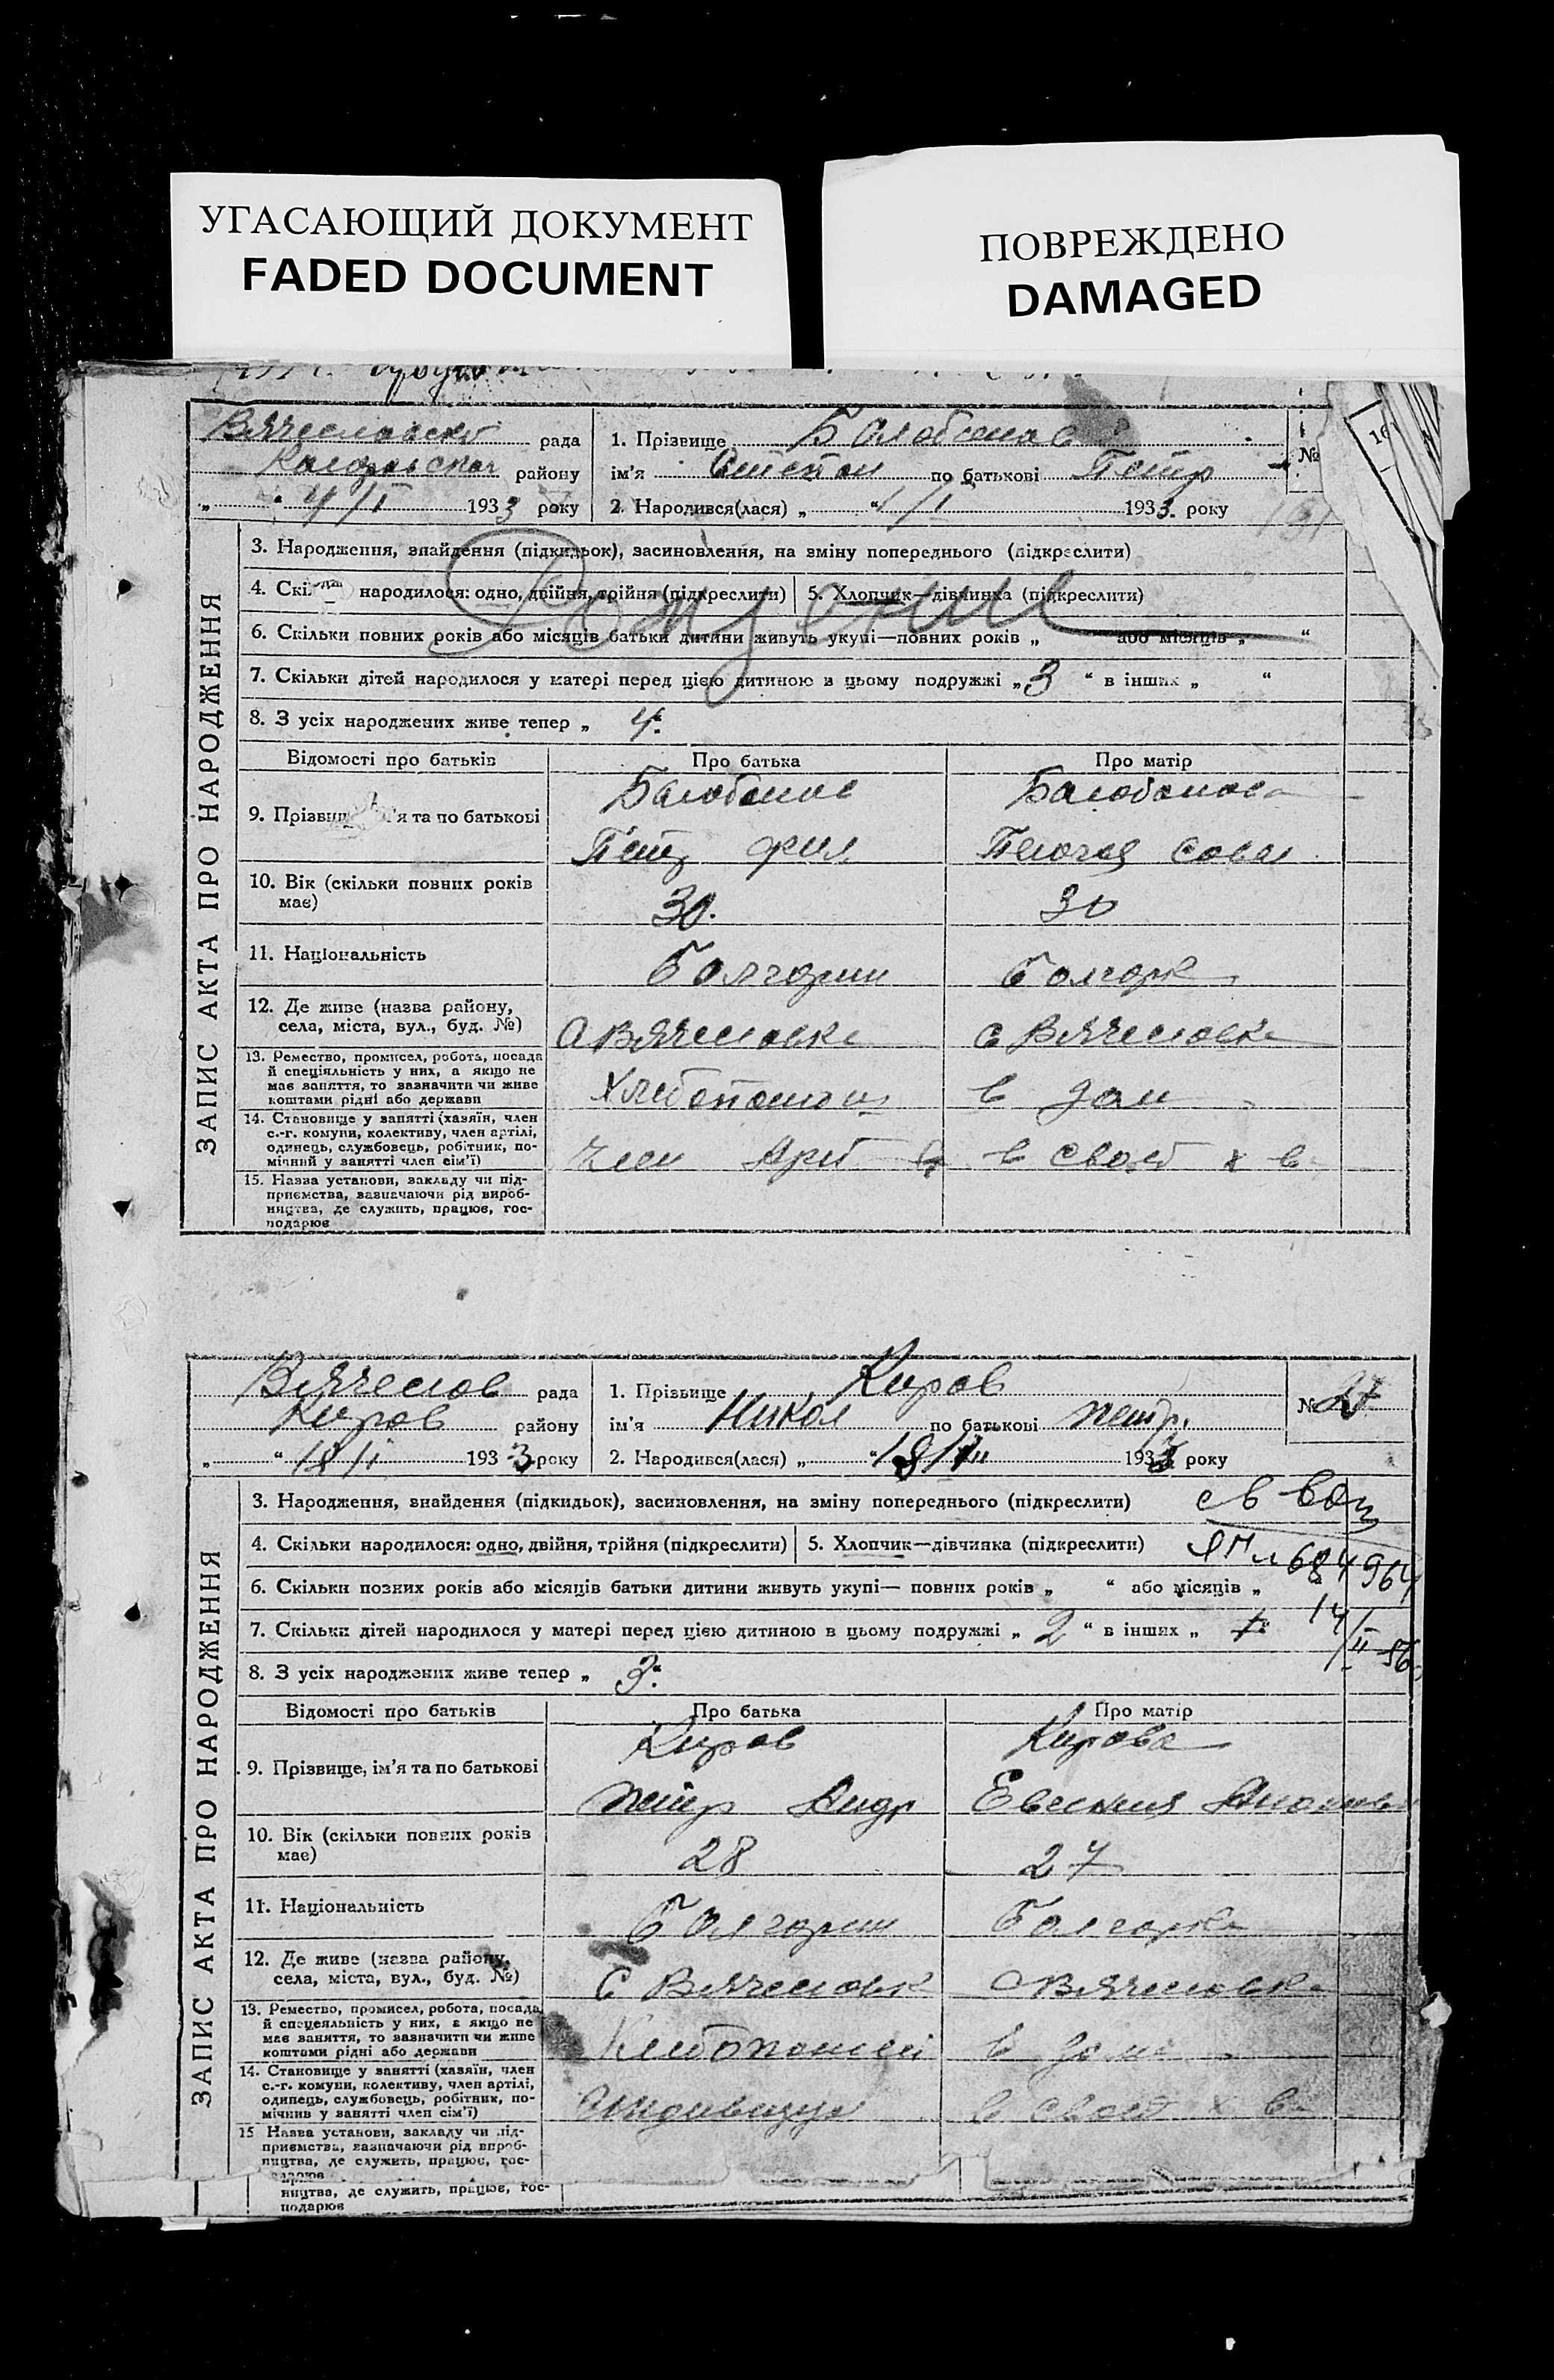 УГАСАЮЩИЙ ДОКУМЕНТ
FADED DOCUMENT
ПОВРЕЖДЕНО
DAMAGED
ЗАПИС АКТА ПРО НАРОДЖЕННЯ
рада
району
" 4/I 1933 року
1. Прізвище Балабанов
ім'я Степан по батькові Петр
2. Народився(лася) " 1/I 1933. року
№
3. Народження, знайдення (підкидьок), засиновлення, на зміну попереднього (підкреслити)
4. народилося: одно, двійня, трійня (підкреслити) 5. Хлопчик—дівчинка (підкреслити)
6. Скільки повних років або місяців батьки дитини живуть укупі—повних років „ “ або місяців „ “
7. Скільки дітей народилося у матері перед цією дитиною в цьому подружжі „ 3 “ в інших „ “
8. З усіх народжених живе тепер „ 4 “
Відомості про батьків Про батька Про матір
9. та по батькові Балабанов Балабанова
Петр Фил
10. Вік (скільки повних років має) 30. 30
11. Національність Болгарин Болгарк
12. Де живе (назва району, села, міста, вул., буд. №) с Вячеславка с Вячеславка
13. Ремество, промисел, робота, посада
й спеціяльність у них, а якщо не
має заняття, то зазначити чи живе
коштами рідні або держави
Хлебопашец в дом
14. Становище у занятті (хазяїн, член
с.-г. комуни, колективу, член артілі,
одинець, службовець, робітник, по-
мічний у занятті член сім'ї)
Член Арт в своей х ве
15. Назва установи, закладу чи під-
приємства, зазначаючи рід вироб-
ництва, де служить, працює, гос-
подарює
ЗАПИС АКТА ПРО НАРОДЖЕННЯ
Вячеслов рада
району
" 18/I 1933 року
1. Прізвище Киров
ім'я Никол по батькові Петр.
2. Народився(лася) „ 193 року
№ 27
3. Народження, знайдення (підкидьок), засиновлення, на зміну попереднього (підкреслити)
4. Скільки народилося: одно, двійня, трійня (підкреслити) 5. Хлопчик—дівчинка (підкреслити)
6. Скільки повних років або місяців батьки дитини живуть укупі— повних років „ “ або місяців „ “
7. Скільки дітей народилося у матері перед цією дитиною в цьому подружжі „ 2 “ в інших „
8. З усіх народжених живе тепер „ 3 “
Відомості про батьків Про батька Про матір
9. Прізвище, ім'я та по батькові Киров Кирова
Петр Андр Евгения
10. Вік (скільки повних років має) 28 27
11. Національність Болгарин Болгарка
12. Де живе (назва району, села, міста, вул., буд. №) с Вячеславк с Вячеславка
13. Ремество, промисел, робота, посада
й спецеяльність у них, а якщо не
має заняття, то зазначити чи живе
коштами рідні або держави
в доме
14. Становище у занятті (хазяїн, член
с.-г. комуни, колективу, член артілі,
одинець, службовець, робітник, по-
мічник у занятті член сім'ї)
Индивидуа в своей х ве
15 Назва установи, закладу чи під-
приємства, зазначаючи рід вироб-
ництва, де служить, працює, гос-
ництва, де служить, працює, гос-
подарює